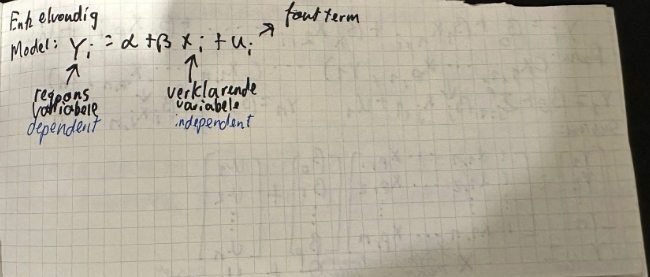 Enkelvoudig
Model: Yi = α + β xi + ui
foutterm
respons
variabele
dependent
verklarende
variabele
independent